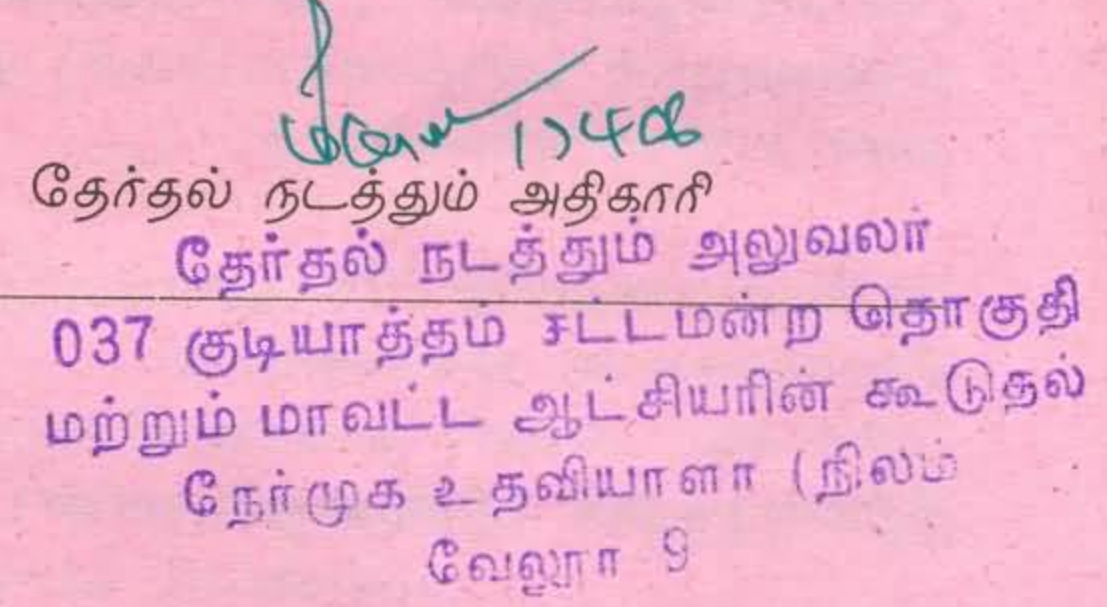 17408
தேர்தல் நடத்தும் அதிகாரி
தேர்தல் நடத்தும் அலுவலர்
037 குடியாத்தம் சட்டமன்ற தொகுதி
மற்றும் மாவட்ட ஆட்சியரின் கூடுதல்
நேர்முக உதவியாளா (நிலம்
வேலூா 9